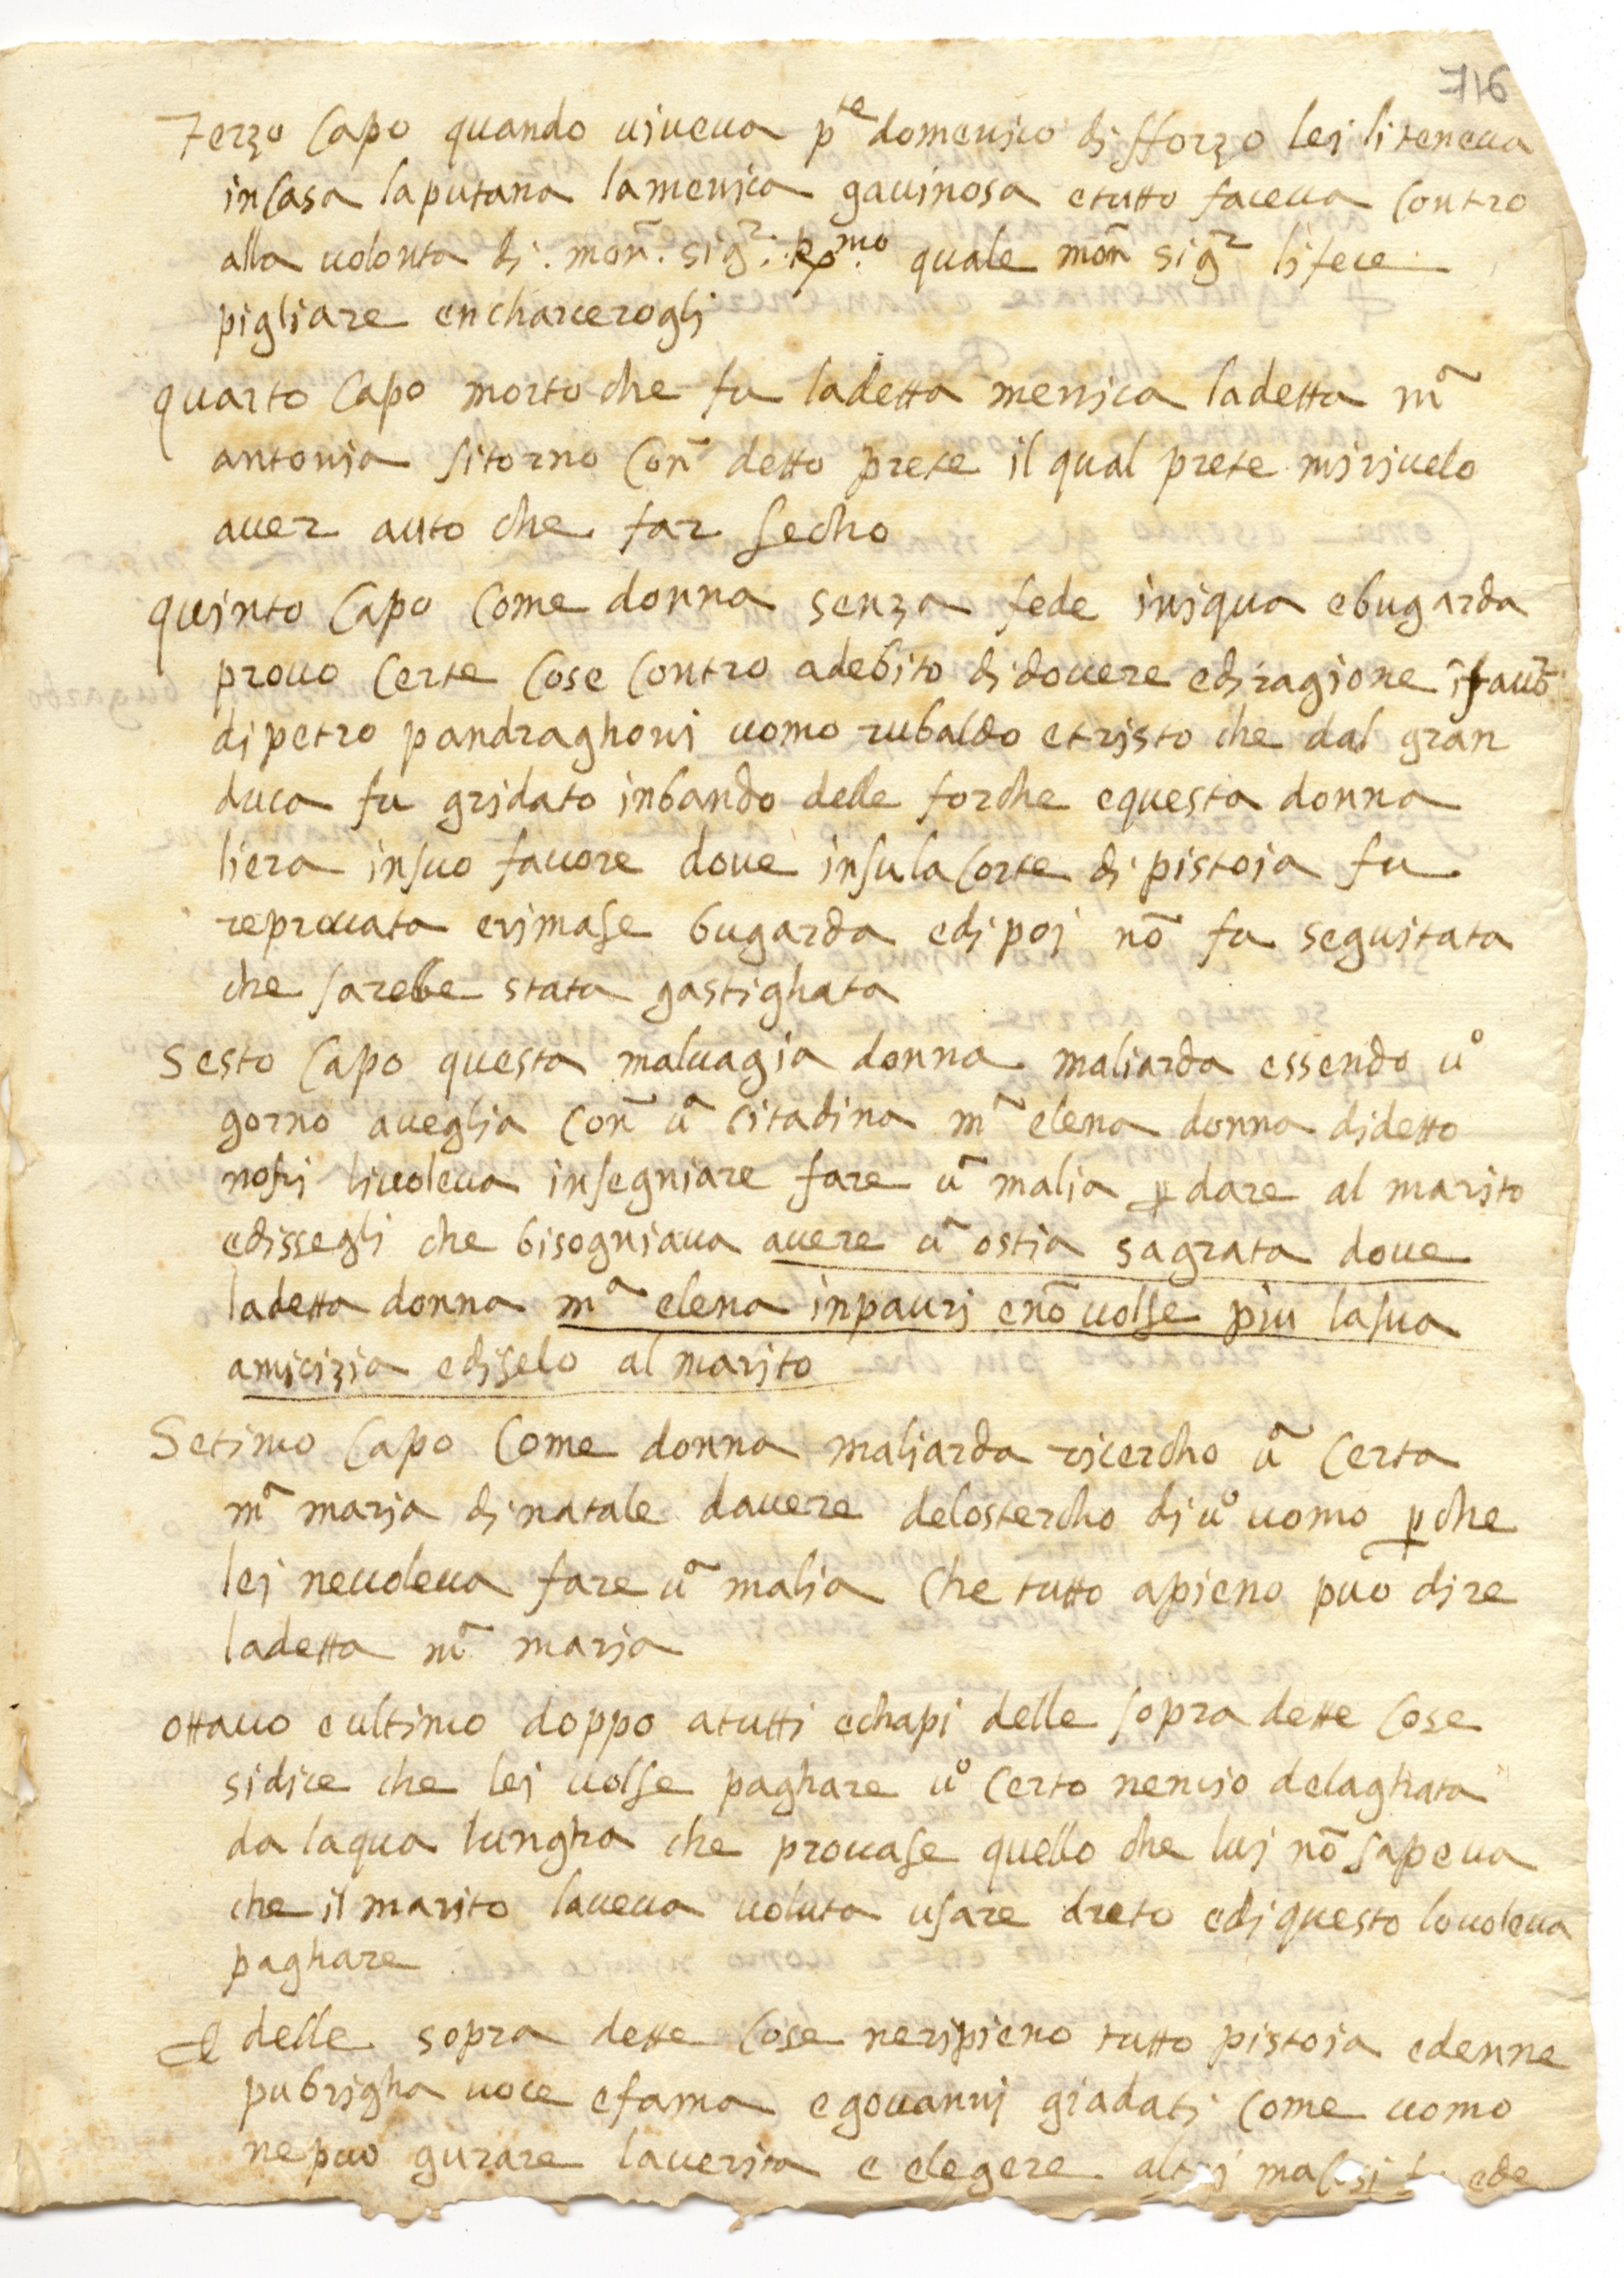 716
Terzo Capo quando viveva p^te domenico di fforzo lei li teneva
in Casa la putana la menica gavinosa e tutto faceva Contro
alla volonta di mon̄. sig^r. R^mo quale mon̄ sig^r li fece
pigliare encharcerogli
quarto Capo morto che fu la detta menica la detta m^a
antonia si torno Con̄ detto prete il qual prete mi rivelo
aver auto che far secho
quinto Capo Come donna senza fede iniqua e bugarda
provo Certe Cose Contro a debito di dovere e di ragione ī favō^r
di petro pandraghoni uomo rubaldo e tristo che dal gran
duca fu gridato in bando delle forche e questa donna
li era in suo favore dove in su la Corte di pistoia fu
reprovata e rimase bugarda e di poi nō fu seguitata
che sarebe stata gastighata
Sesto Capo questa malvagia donna maliarda essendo u^o
gorno a veglia Con̄ u^a citadina m^a elena donna di detto
nofri li voleva insegniare fare u^a malia p dare al marito
e dissegli che bisogniava avere u^a ostia sagrata dove
la detta donna m^a elena inpauri e nō volse piu la sua
amicizia e diselo al marito
Setimo Capo Come donna maliarda ricercho u^a Certa
m^a maria di natale d avere de lo stercho di u^o uomo p che
lei ne voleva fare u^a malia Che tutto a pieno puo dire
la detta m^a maria
ottavo e ultimo doppo a tutti e chapi delle sopra dette Cose
si dice che lei volse paghare u^o Certo nencio de laghata
da l aqua lungha che provase quello che lui nō sapeva
che il marito l aveva voluta usare dreto e di questo lo voleva
paghare
E delle sopra dette Cose ne ripieno tutto pistoia e denne
pubrigha voce e fama e govanni giadati Come uomo
ne puo gurare la verita e elegere